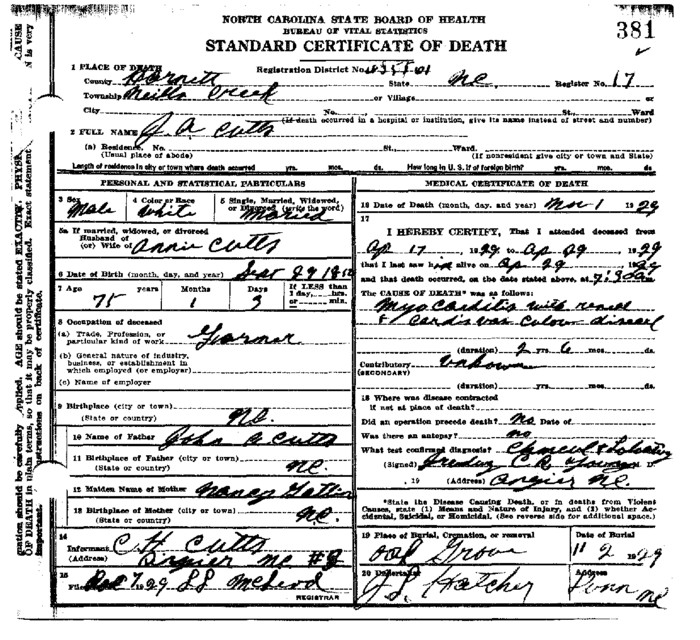 NORTH CAROLINA STATE BOARD OF HEALTH
BUREAU OF VITAL STATISTICS
STANDARD CERTIFICATE OF DEATH
381
1 PLACE OF DEATH
Registration District No.
County Harnett State NC Register No. 17
Township Neills Creek or Village or
City No. St., Ward
(If death occurred in a hospital or institution, give its name instead of street and number)
2 FULL NAME J. A. Cutts
(a) Residence. No. St., Ward.
(Usual place of abode) (If nonresident give city or town and State)
Length of residence in city or town where death occurred yrs. mos. ds. How long in U. S. if of foreign birth? yrs. mos. ds.
PERSONAL AND STATISTICAL PARTICULARS
3 Sex 4 Color or Race 5 Single, Married, Widowed,
or Divorced (write the word)
Male White Married
5a If married, widowed, or divorced
Husband of
(or) Wife of Annie Cutts
6 Date of Birth (month, day, and year) Sept 29
7 Age years Months Days If LESS than
1 day, hrs.
or min.
75 1 3
8 Occupation of deceased
(a) Trade, Profession, or
particular kind of work Farmer
(b) General nature of industry,
business, or establishment in
which employed (or employer)
(c) Name of employer
9 Birthplace (city or town)
(State or country) NC.
10 Name of Father John A Cutts
11 Birthplace of Father (city or town)
(State or country) NC.
12 Maiden Name of Mother Nancy
13 Birthplace of Mother (city or town)
(State or country) NC.
14
Informant C H Cutts
(Address) Angier NC #
15
Filed Dec 7 1929 McLeod
REGISTRAR
MEDICAL CERTIFICATE OF DEATH
16 Date of Death (month, day, and year) Nov 1 1929
17
I HEREBY CERTIFY, That I attended deceased from
Ap 17, 1929 to Ap 29, 1929
that I last saw him alive on Ap 29 1929
and that death occurred, on the date stated above, at
The CAUSE OF DEATH* was as follows:
Myocarditis with renal
& cardiovascular disease
(duration) 2 yrs. 6 mos. ds.
Contributory unknown
(SECONDARY)
(duration) yrs. mos. ds.
18 Where was disease contracted
if not at place of death?
Did an operation precede death? no Date of
Was there an autopsy? no
What test confirmed diagnosis?
(Signed) C. R. Young D.
, 19 (Address) Angier NC.
*State the Disease Causing Death, or in deaths from Violent
Causes, state (1) Means and Nature of Injury, and (2) whether Ac-
cidental, Suicidal, or Homicidal. (See reverse side for additional space.)
19 Place of Burial, Cremation, or removal Date of Burial
Oak Grove 11 2 1929
20 Undertaker Address
Hatcher Dunn NC